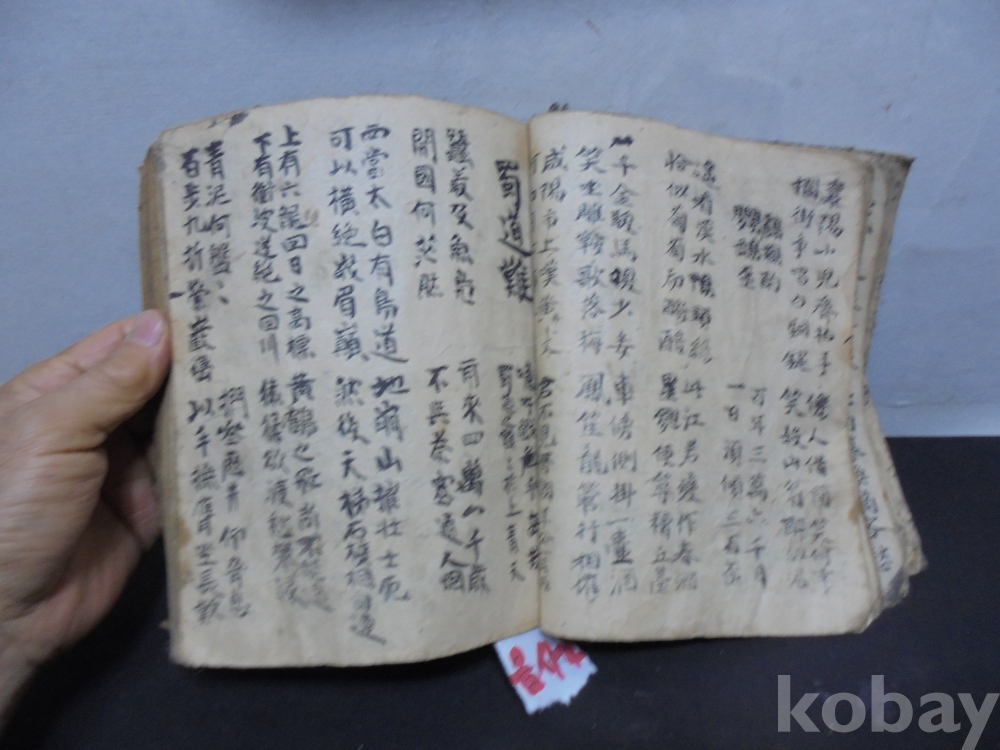 襄陽小兒齊拍手 傍人借問笑何事
攔街爭唱白銅鍉 笑殺山翁醉似泥
鸕鶿杓 百年三萬六千日
鸚鵡盃 一日須傾三百盃
遙看漢水鴨頭綠 此江若變作春酒
恰似葡萄初醱醅 壘麴便築糟丘臺
千金駿馬換少妾 車傍側掛一壺酒
笑坐雕鞍歌落梅 鳳笙龍管行相催
咸陽市上嘆黃犬
蜀道難
蠶叢及魚鳧 爾來四萬八千歲
開國何茫然 不與秦塞通人烟
西當太白有鳥道 地崩山摧壯士死
可以橫絕峨眉巓 然後天梯石棧相
上有六龍回日之高標 黃鶴之飛尚不得過
下有衝波逆 之回川 猿猱欲度愁
青泥何盤〻 捫參歷井仰脅息
百步九折縈巖巒 以手撫膺坐長歎
kobay